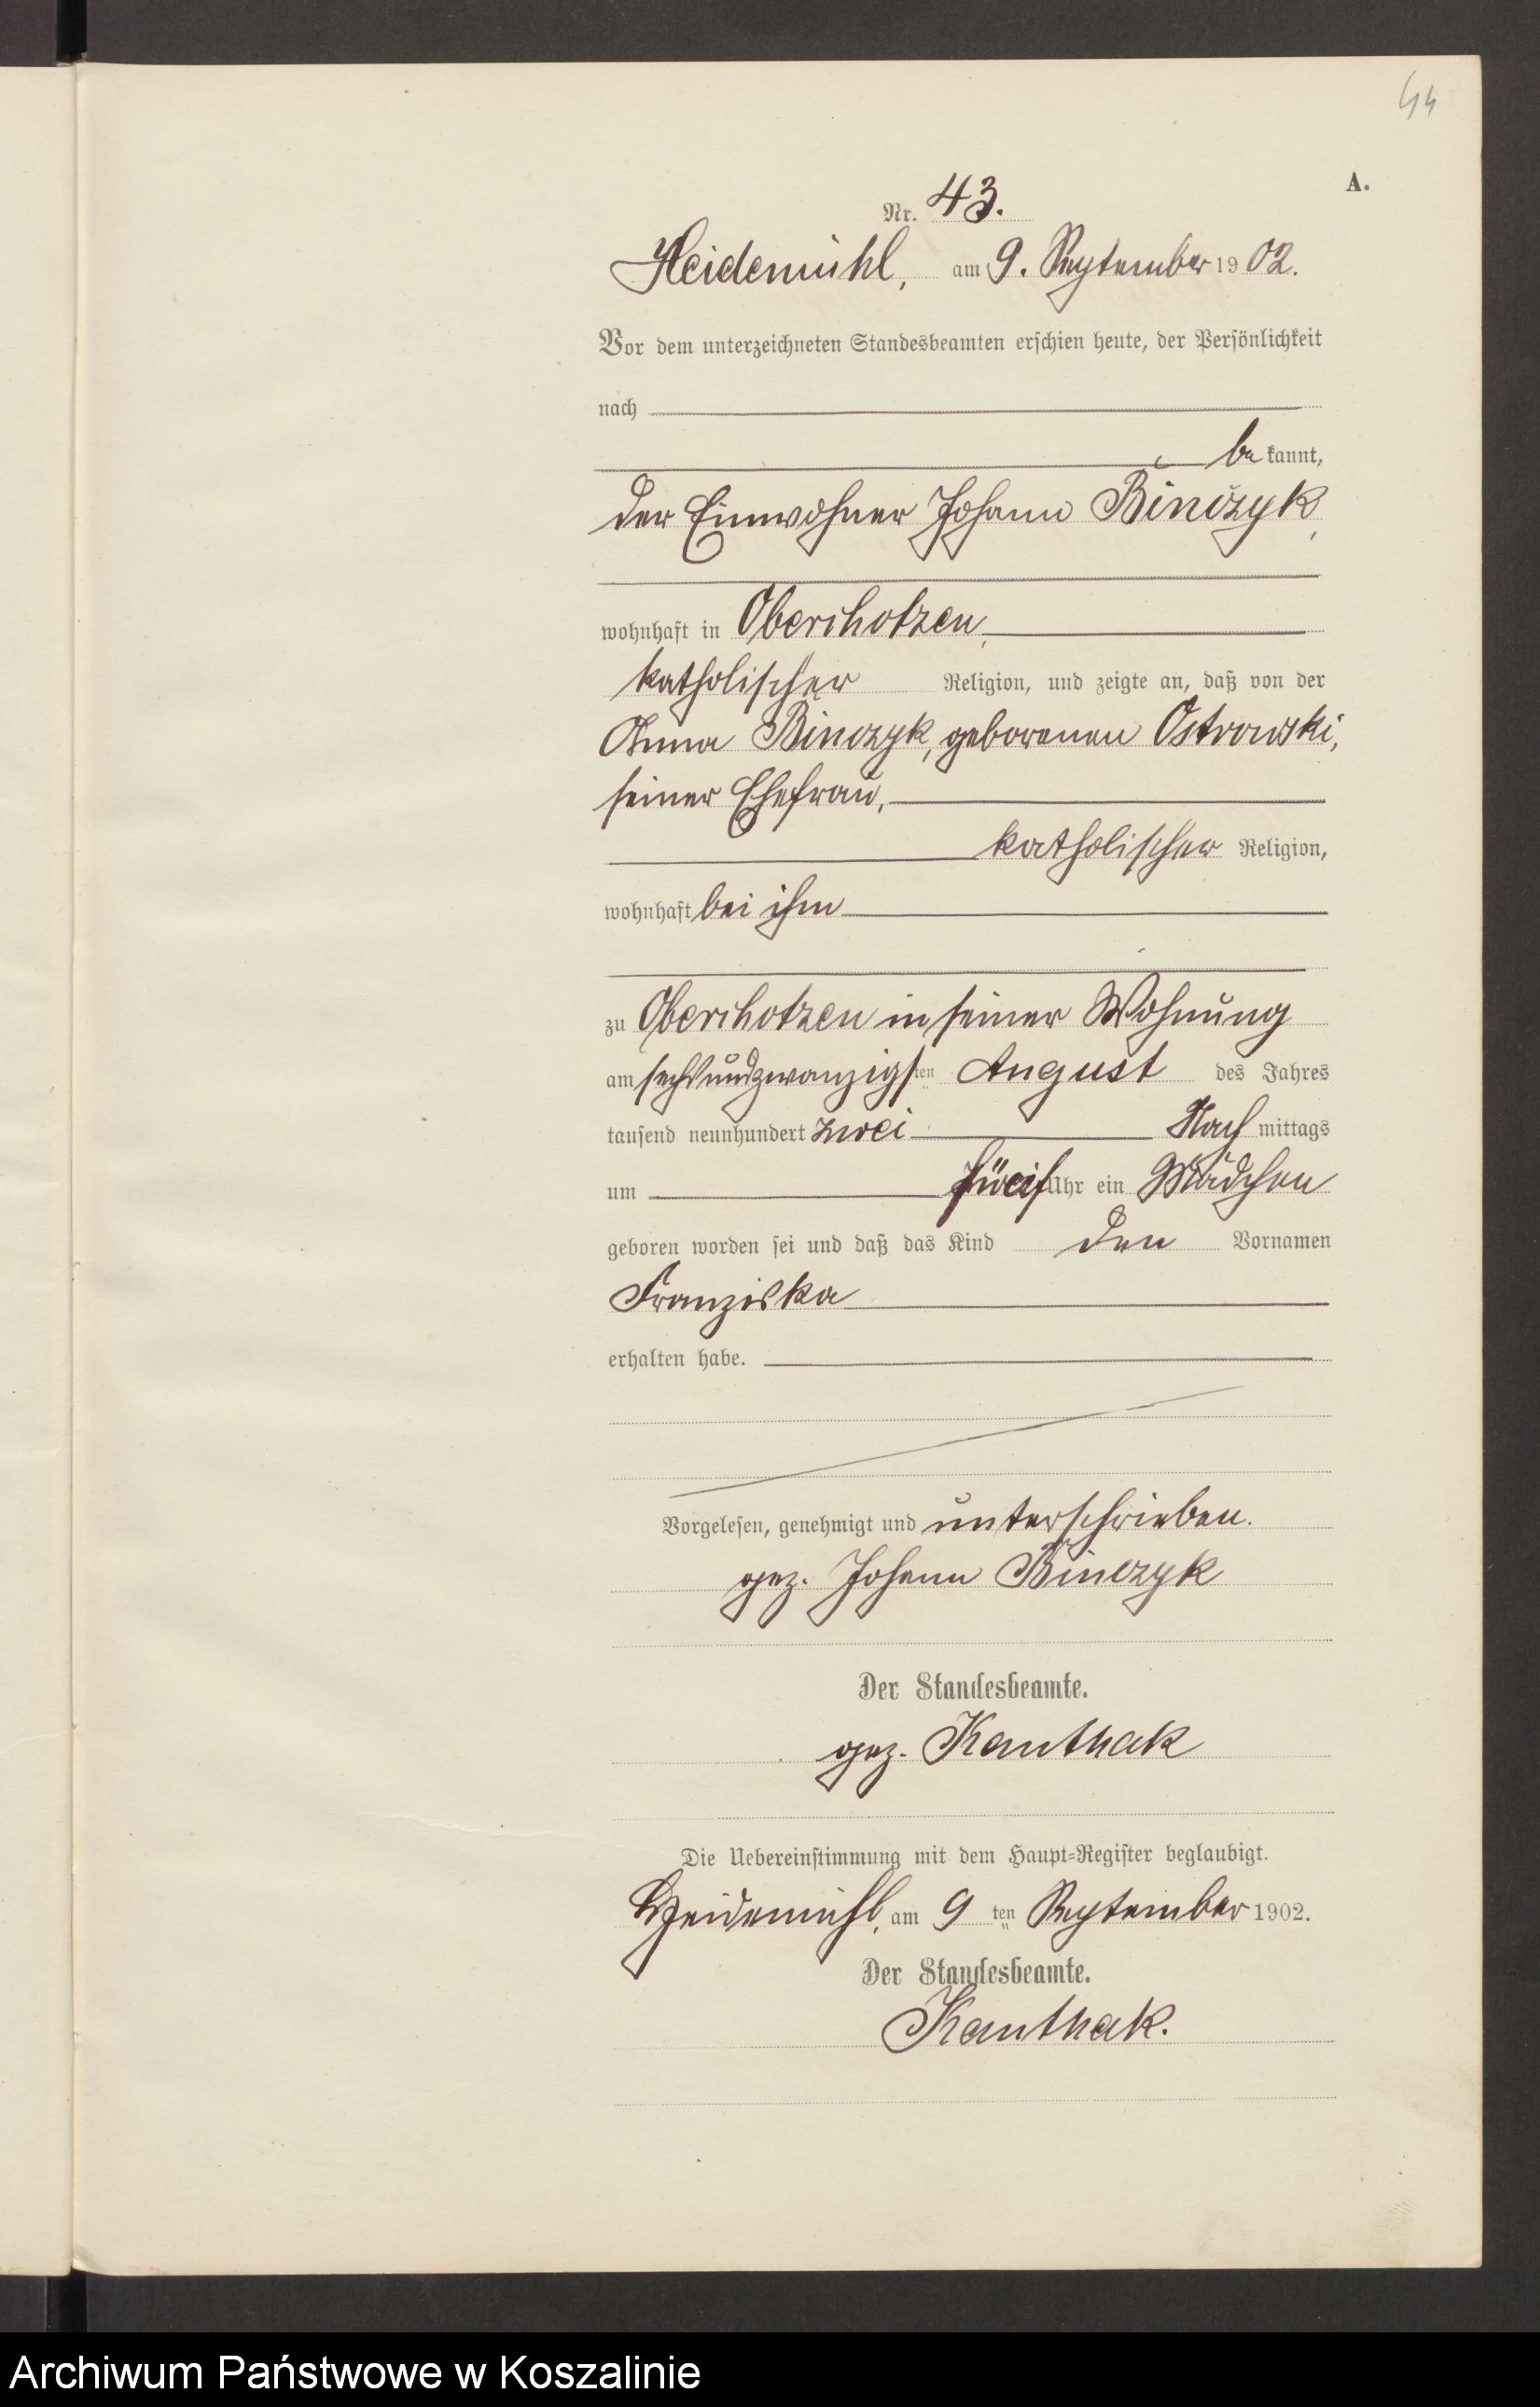 44
A.
Nr. 43.
Heidemühl, am 9. September 1902.
Vor dem unterzeichneten Standesbeamten erschien heute, der Persönlichkeit
nach
be kannt,
der Einwohner Johann Binczyk,
wohnhaft in Oberchotzen,
katholischer Religion, und zeigte an, daß von der
Anna Binczyk, geborenen Ostrowski,
seiner Ehefrau,
katholischer Religion,
wohnhaft bei ihm
zu Oberchotzen in seiner Wohnung
am sechsundzwanzigsten August des Jahres
tausend neunhundert zwei Nach mittags
um Uhr ein Mädchen
geboren worden sei und daß das Kind den Vornamen
Franziska
erhalten habe.
Vorgelesen, genehmigt und unterschrieben.
gez. Johann Binczyk
Der Standesbeamte.
gez. Kanthak
Die Uebereinstimmung mit dem Haupt-Register beglaubigt.
Heidemühl, am 9 ten September 1902.
Der Standesbeamte.
Kanthak.
Archiwum Państwowe w Koszalinie